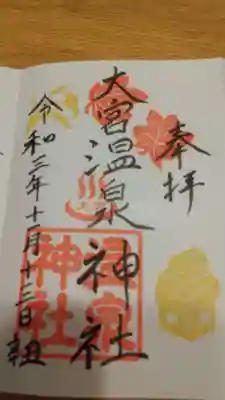 奉拝
大宮温泉神社
令和三年十一月十三日
神社